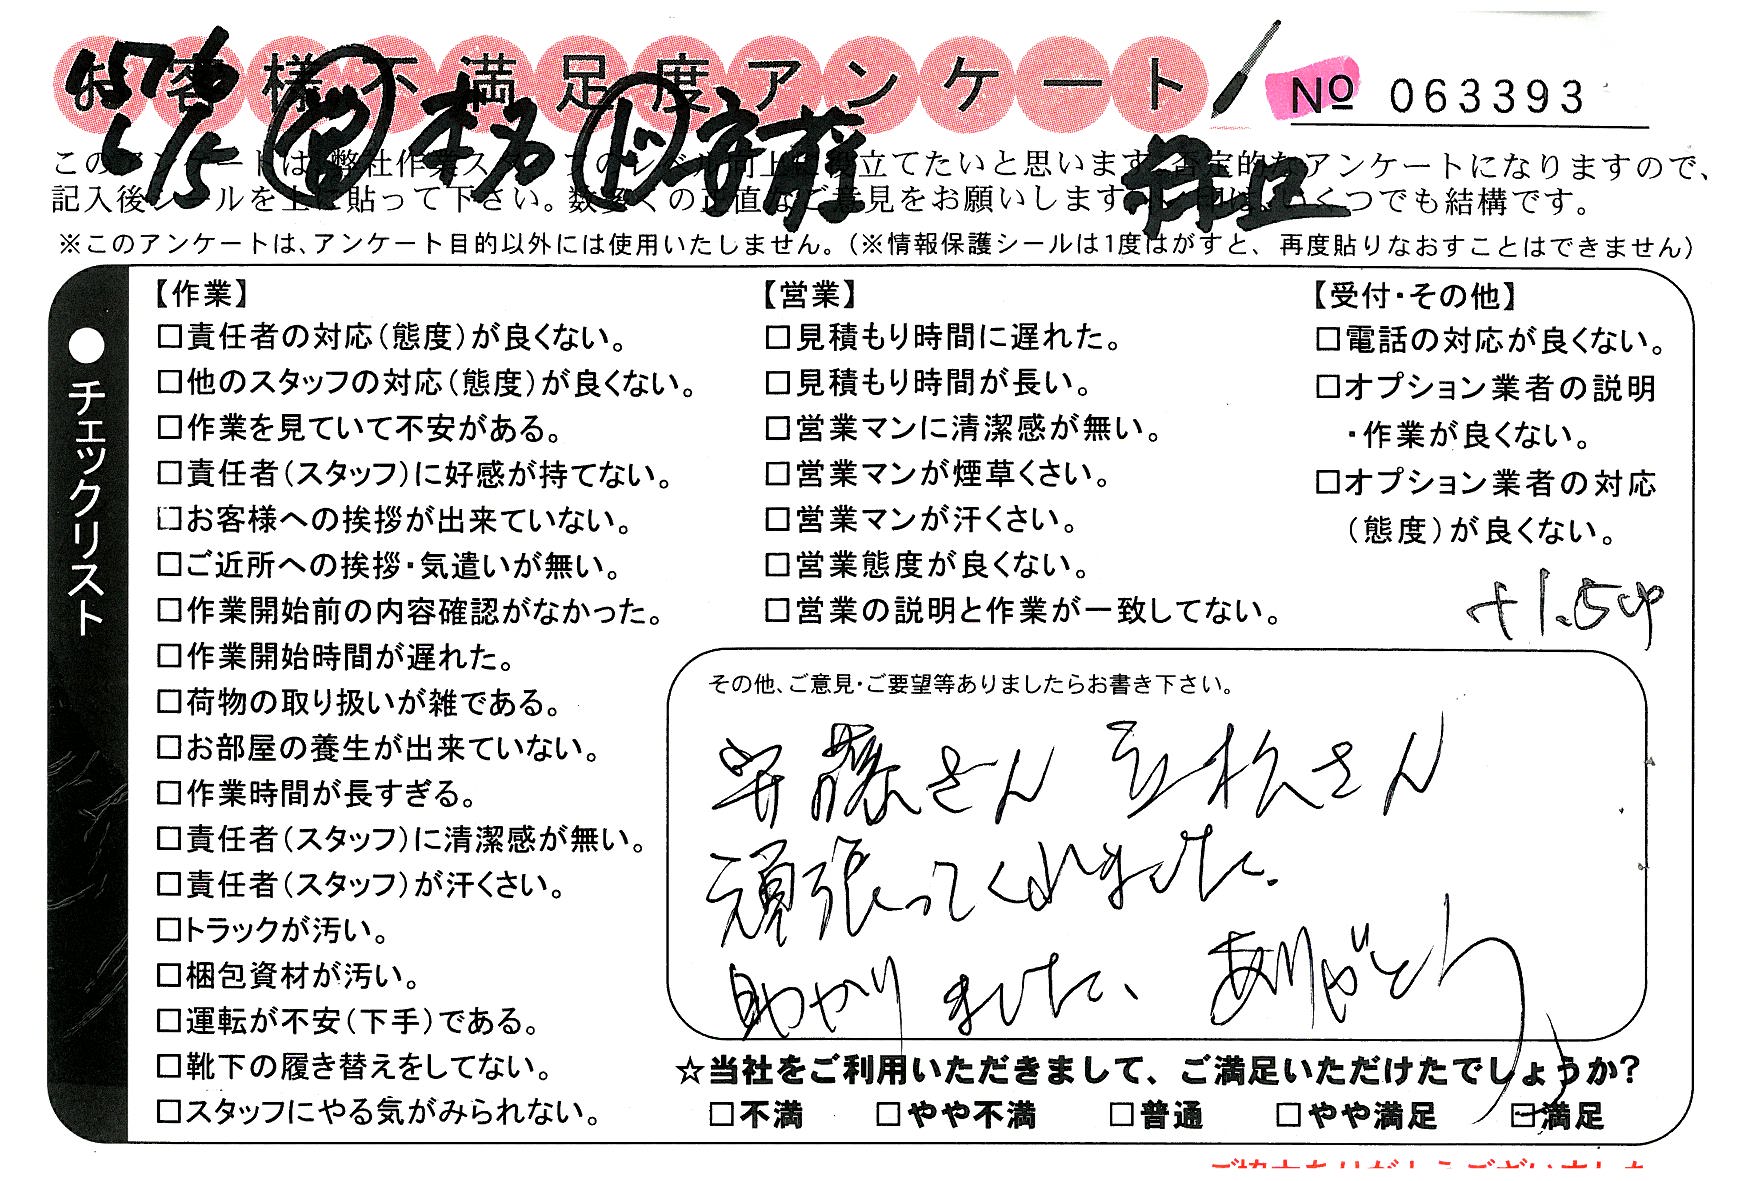 お客様不満足度アンケート
No 063393
4576
6/5 営 本名 ド 安藤
このアンケートは、弊社作業スタッフのレベル向上に役立てたいと思います。否定的なアンケートになりますので、
記入後シールを上に貼って下さい。数多くの正直なご意見をお願いします。いくつでも結構です。
※このアンケートは、アンケート目的以外には使用いたしません。(※情報保護シールは1度はがすと、再度貼りなおすことはできません)
●チェックリスト
【作業】
□責任者の対応(態度)が良くない。
□他のスタッフの対応(態度)が良くない。
□作業を見ていて不安がある。
□責任者(スタッフ)に好感が持てない。
□お客様への挨拶が出来ていない。
□ご近所への挨拶・気遣いが無い。
□作業開始前の内容確認がなかった。
□作業開始時間が遅れた。
□荷物の取り扱いが雑である。
□お部屋の養生が出来ていない。
□作業時間が長すぎる。
□責任者(スタッフ)に清潔感が無い。
□責任者(スタッフ)が汗くさい。
□トラックが汚い。
□梱包資材が汚い。
□運転が不安(下手)である。
□靴下の履き替えをしてない。
□スタッフにやる気がみられない。
【営業】
□見積もり時間に遅れた。
□見積もり時間が長い。
□営業マンに清潔感が無い。
□営業マンが煙草くさい。
□営業マンが汗くさい。
□営業態度が良くない。
□営業の説明と作業が一致してない。
【受付・その他】
□電話の対応が良くない。
□オプション業者の説明
・作業が良くない。
□オプション業者の対応
(態度)が良くない。
+1.5cp
その他、ご意見・ご要望等ありましたらお書き下さい。
安藤さん 立松さん
頑張ってくれました。
助かりました、ありがとう
☆当社をご利用いただきまして、ご満足いただけたでしょうか?
□不満 □やや不満 □普通 □やや満足 □満足
ご協力ありがとうございました